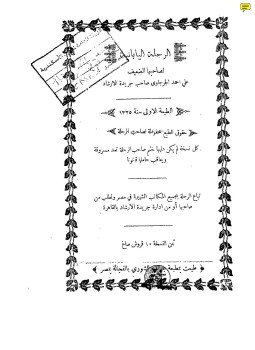 الرحلة اليابانية
لصاحبها الضعيف
علي احمد الجرجاوي صاحب جريدة الارشاد
الطبعة الاولى سنة ١٣٢٥
حقوق الطبع محفوظة لصاحب الرحلة
كل نسخة لم يكن عليها ختم صاحب الرحلة تعد مسروقة
ويعاقب حاملها قانونا
تباع الرحلة بجميع المكاتب الشهيرة في مصر وتطلب من
صاحبها أو من ادارة جريدة الارشاد بالقاهرة
ثمن النسخة ١٠ قروش صاغ
طبعت بمطبعة الشورى بالفجالة بمصر